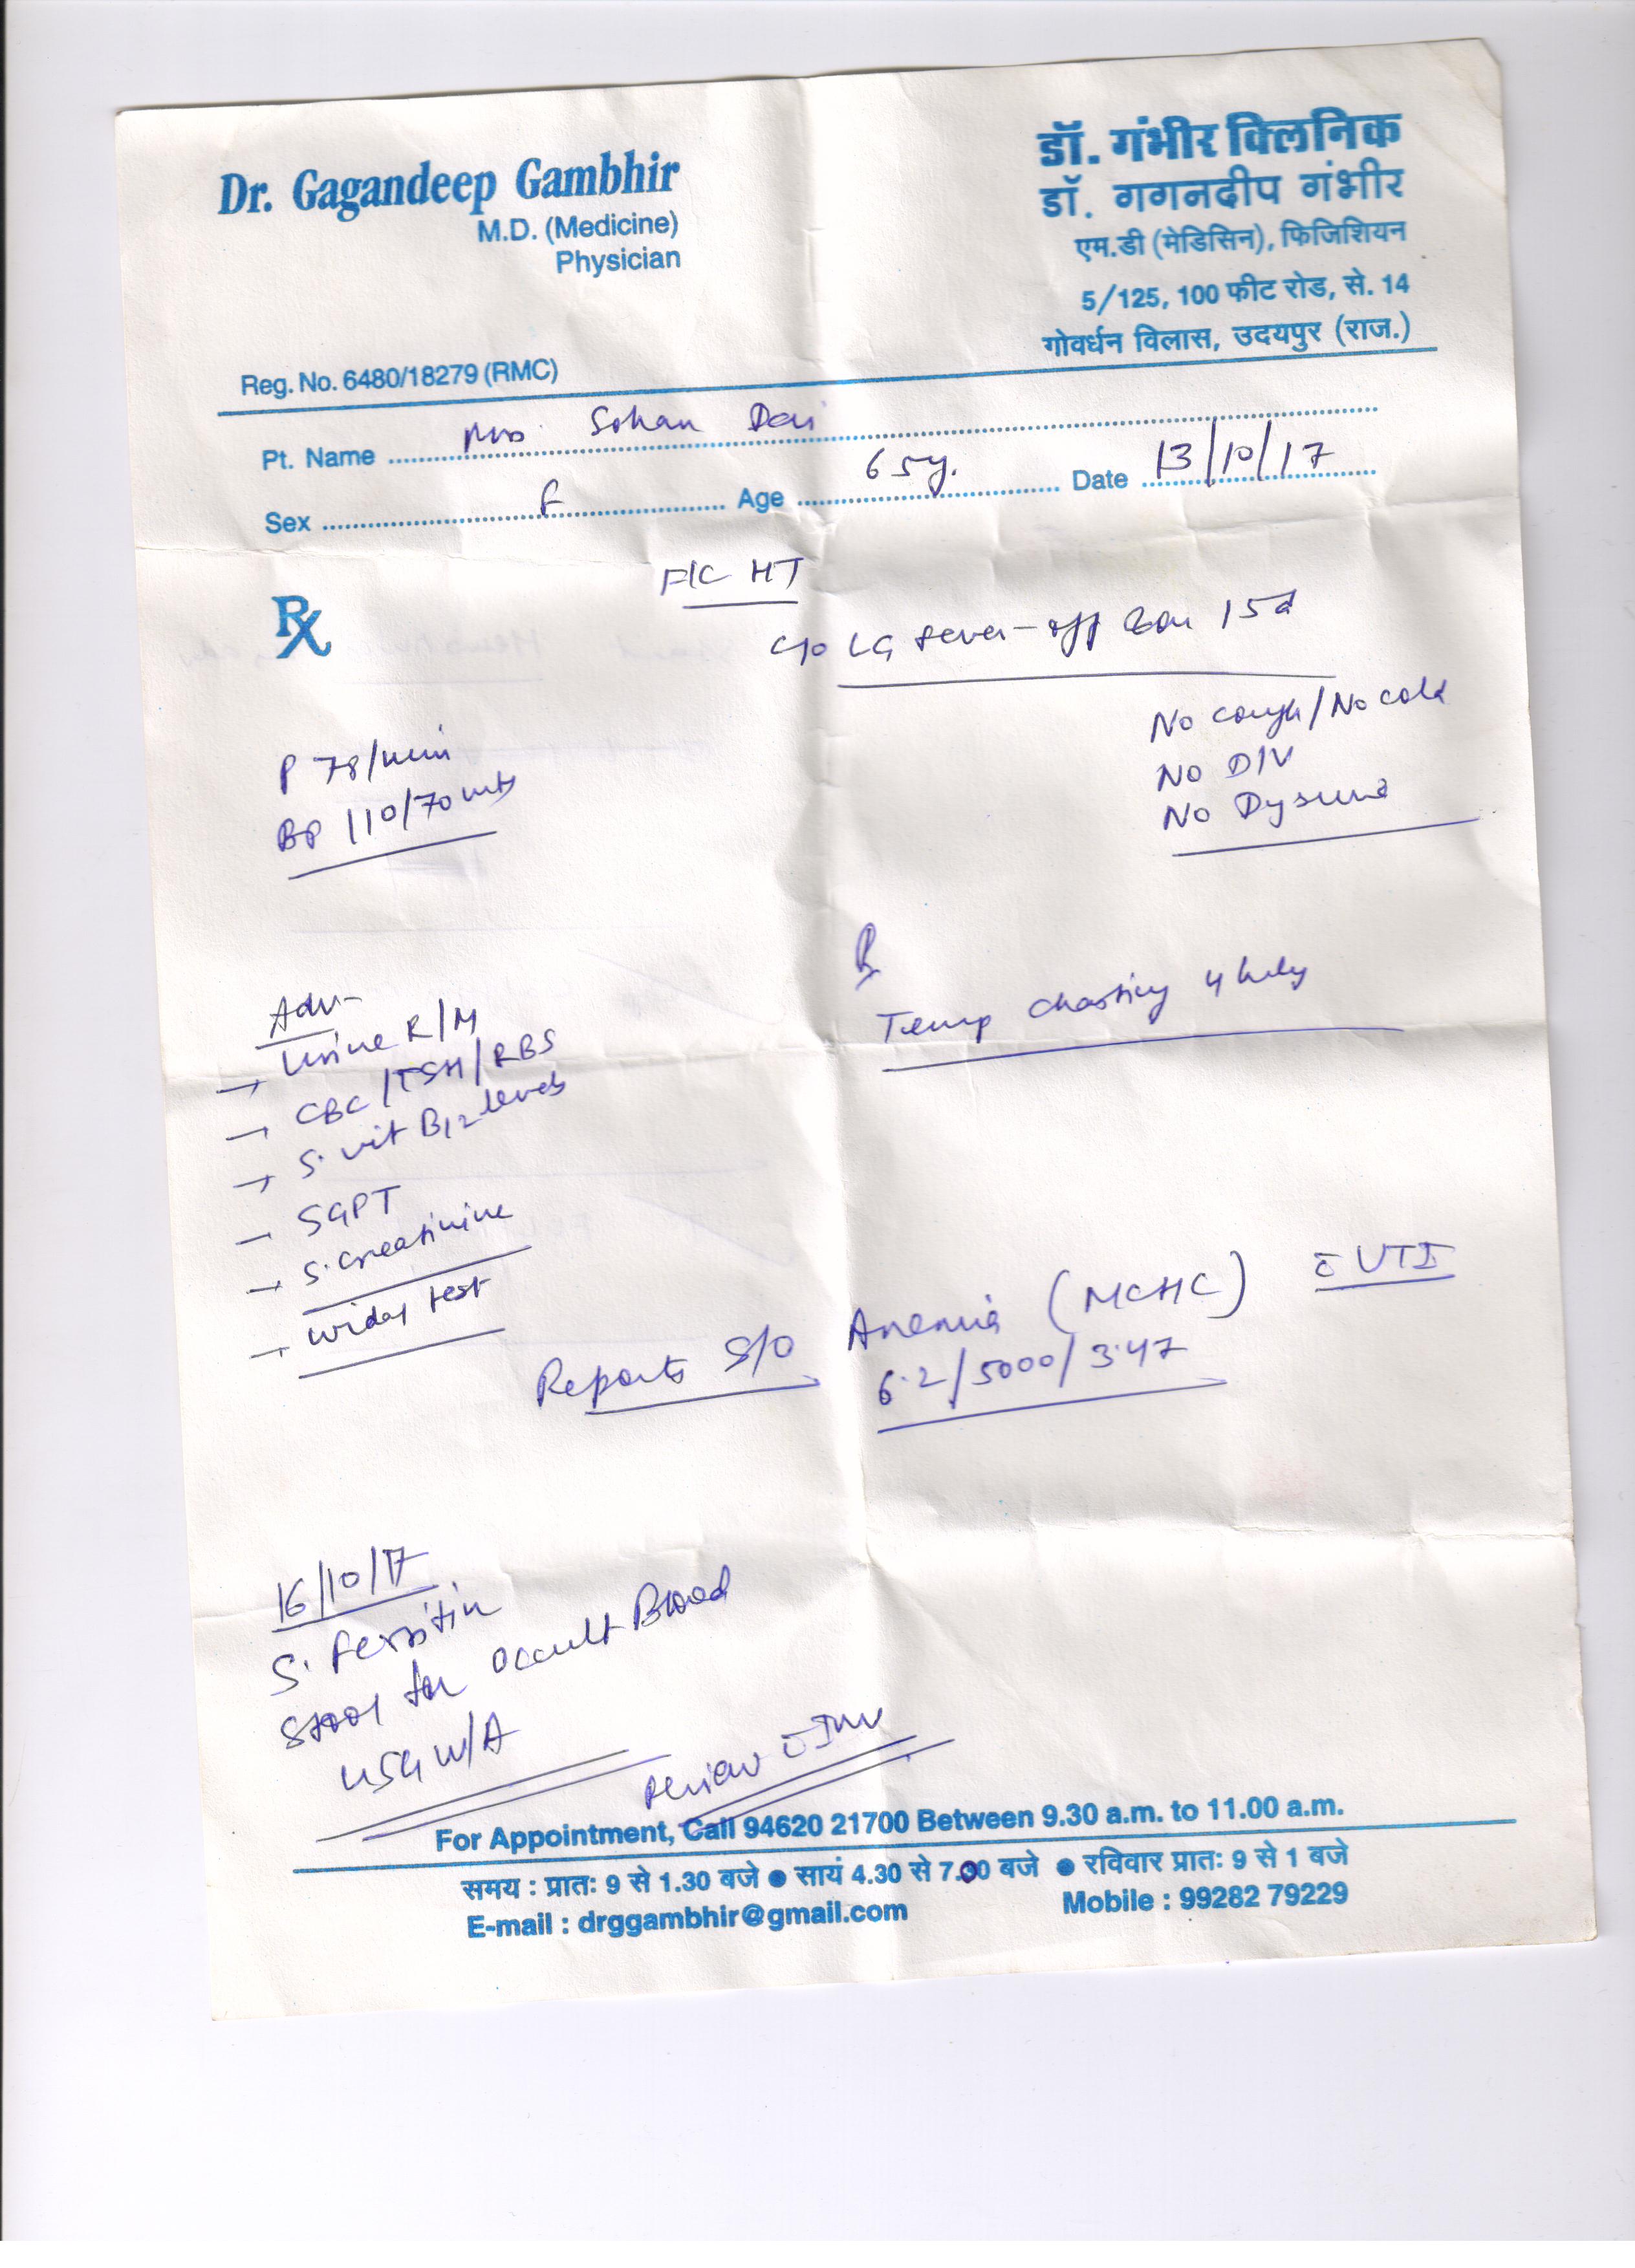 Dr. Gagandeep Gambhir
M.D. (Medicine)
Physician
Reg. No. 6480/18279 (RMC)
डॉ. गंभीर क्लिनिक
डॉ. गगनदीप गंभीर
एम.डी (मेडिसिन), फिजिशियन
5/125, 100 फीट रोड, से. 14
गोवर्धन विलास, उदयपुर (राज.)
Pt. Name Mrs. Sohan Devi
Sex F Age 65y. Date 13/10/17
Rx
HT
c/o LG fever-off 15d
No cough/No cold
No D/V
No Dysuria
P 78/min
BP 110/70
Rx
Temp charting 4 hrly
Adv-
→ Urine R/M
→ CBC/TSH/RBS
→ S. vit B12 levels
→ SGPT
→ S. Creatinine
→ widal test
Reports S/O Anemia (MCHC) c̄ UTI
6.2/5000/3.47
16/10/17
S. Ferritin
Stool for occult Blood
USG W/A
Review c̄ Inv
For Appointment, Call 94620 21700 Between 9.30 a.m. to 11.00 a.m.
समय : प्रातः 9 से 1.30 बजे ● सायं 4.30 से 7.00 बजे ● रविवार प्रातः 9 से 1 बजे
E-mail : drggambhir@gmail.com Mobile : 99282 79229